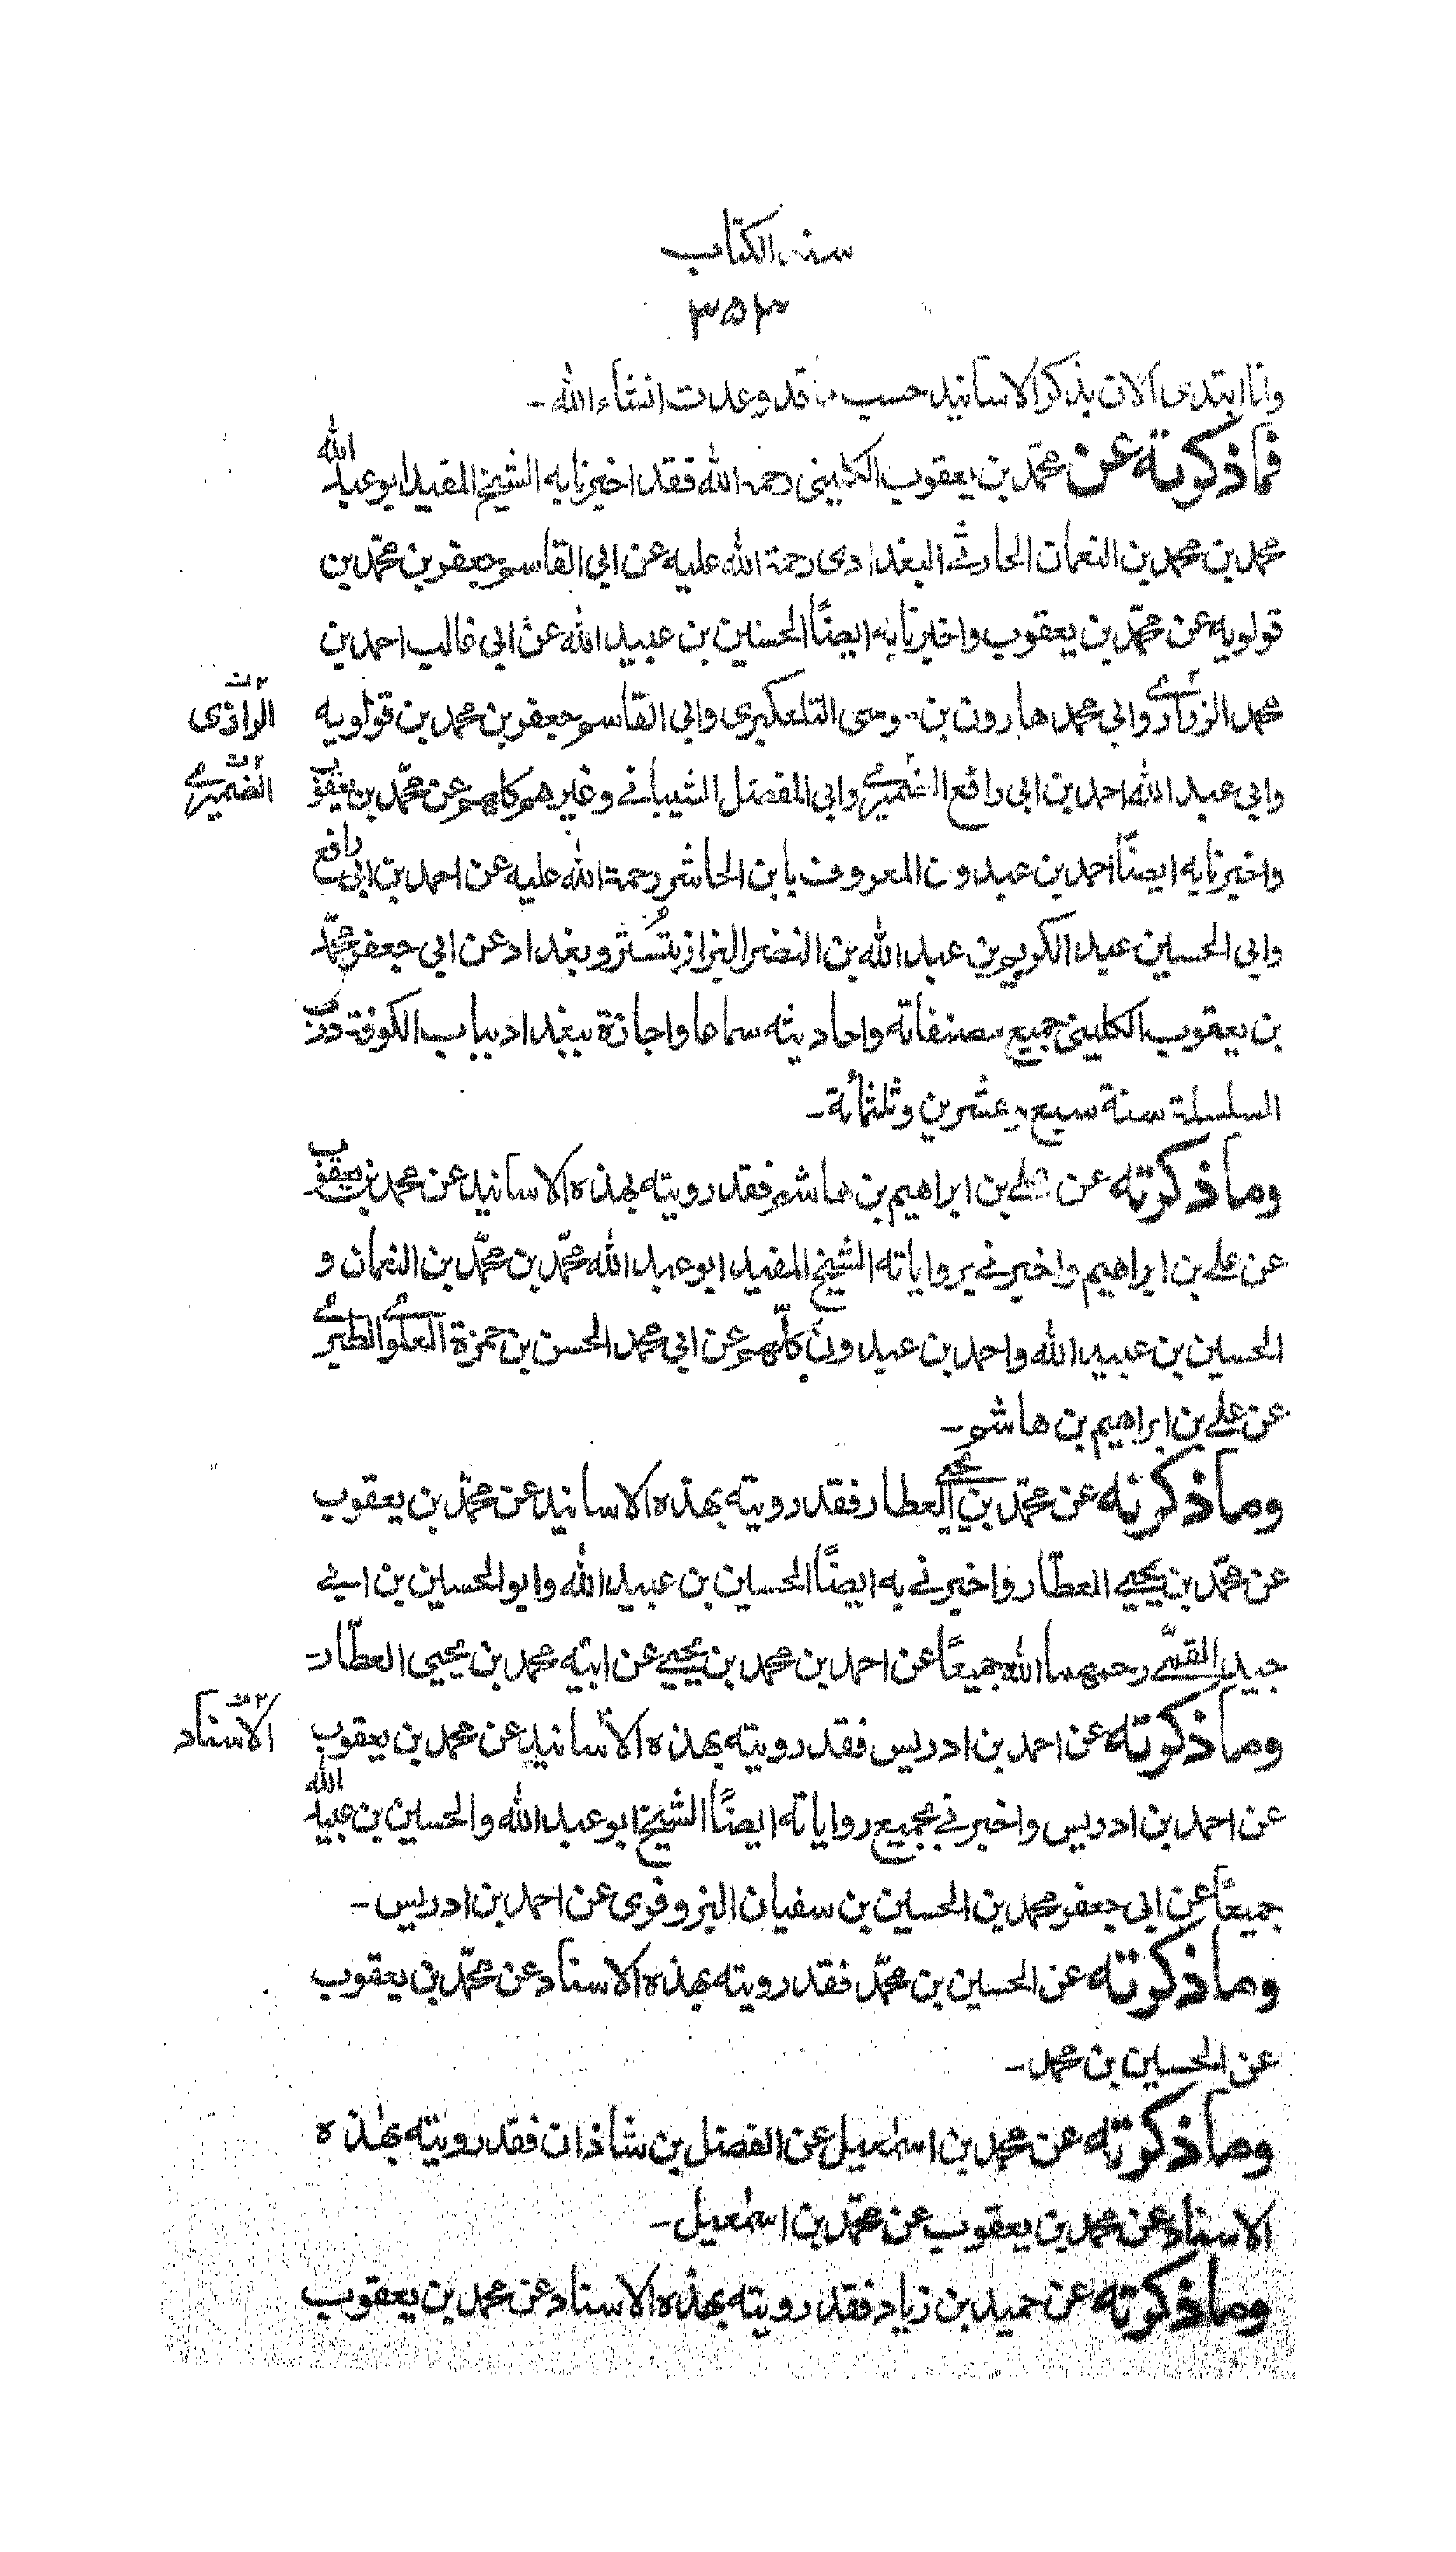 سند الكتاب
٣٥٣
وانا ابتدى الان بذكر الاسانيد حسب ما قد وعدت انشاء الله -
فما ذكرته عن محمّد بن يعقوب الكليني رحمه الله فقد اخبرنا به الشيخ المفيد ابو عبد الله
محمد بن محمد بن النعمان الحارثي البغدادى رحمة الله عليه عن ابى القاسم جعفر بن محمّد بن
قولويه عن محمّد بن يعقوب واخبرنا به ايضًا الحسين بن عبيد الله عن ابى غالب احمد بن
محمد الزرارى وابى محمد هارون بن موسى التلعكبرى وابى القاسم جعفر بن محمد بن قولويه
الرازى
وابى عبد الله احمد بن ابى رافع الضميرى وابى المفضل الشيبانى وغيرهم كلهم عن محمّد بن يعقوب
الضميرى
واخبرنا به ايضًا احمد بن عبدون المعروف بابن الحاشر رحمة الله عليه عن احمد بن ابى رافع
وابى الحسين عبد الكريم بن عبد الله بن النضر البزاز بتُستر وبغداد عن ابى جعفر محمّد
بن يعقوب الكلينى جميع مصنفاته واحاديثه سماعا واجازة ببغداد بباب الكوفة درب
السلسلة سنة سبع وعشرين وثلثمائة -
وما ذكرته عن على بن ابراهيم بن هاشم فقد رويته بهذه الاسانيد عن محمد بن يعقوب
عن على بن ابراهيم واخبرنى برواياته الشيخ المفيد ابو عبد الله محمّد بن محمّد بن النعمان و
الحسين بن عبيد الله واحمد بن عبدون كلّهم عن ابى محمد الحسن بن حمزة العلوى الطبرى
عن على بن ابراهيم بن هاشم -
وما ذكرته عن محمّد بن يحيى العطار فقد رويته بهذه الاسانيد عن محمّد بن يعقوب
عن محمّد بن يحيى العطّار واخبرنى به ايضًا الحسين بن عبيد الله وابو الحسين بن ابى
جيد القمّى رحمهما الله جميعًا عن احمد بن محمد بن يحيى عن ابيه محمد بن يحيى العطّار -
وما ذكرته عن احمد بن ادريس فقد رويته بهذه الاسانيد عن محمد بن يعقوب
الاسناد
عن احمد بن ادريس واخبرنى بجميع رواياته ايضًا الشيخ ابو عبد الله والحسين بن عبيد الله
جميعًا عن ابى جعفر محمد بن الحسين بن سفيان البزوفرى عن احمد بن ادريس -
وما ذكرته عن الحسين بن محمّد فقد رويته بهذه الاسناد عن محمّد بن يعقوب
عن الحسين بن محمد -
وما ذكرته عن محمد بن اسمٰعيل عن الفضل بن شاذان فقد رويته بهٰذه
الاسناد عن محمد بن يعقوب عن محمّد بن اسمٰعيل -
وما ذكرته عن حميد بن زياد فقد رويته بهذه الاسناد عن محمد بن يعقوب